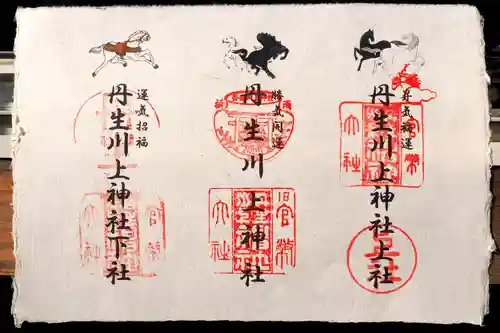 丹生川上神社上社
官幣
大社
勝気開運
丹生川上神社
旧官幣
大社
運気招福
丹生川上神社下社
官幣